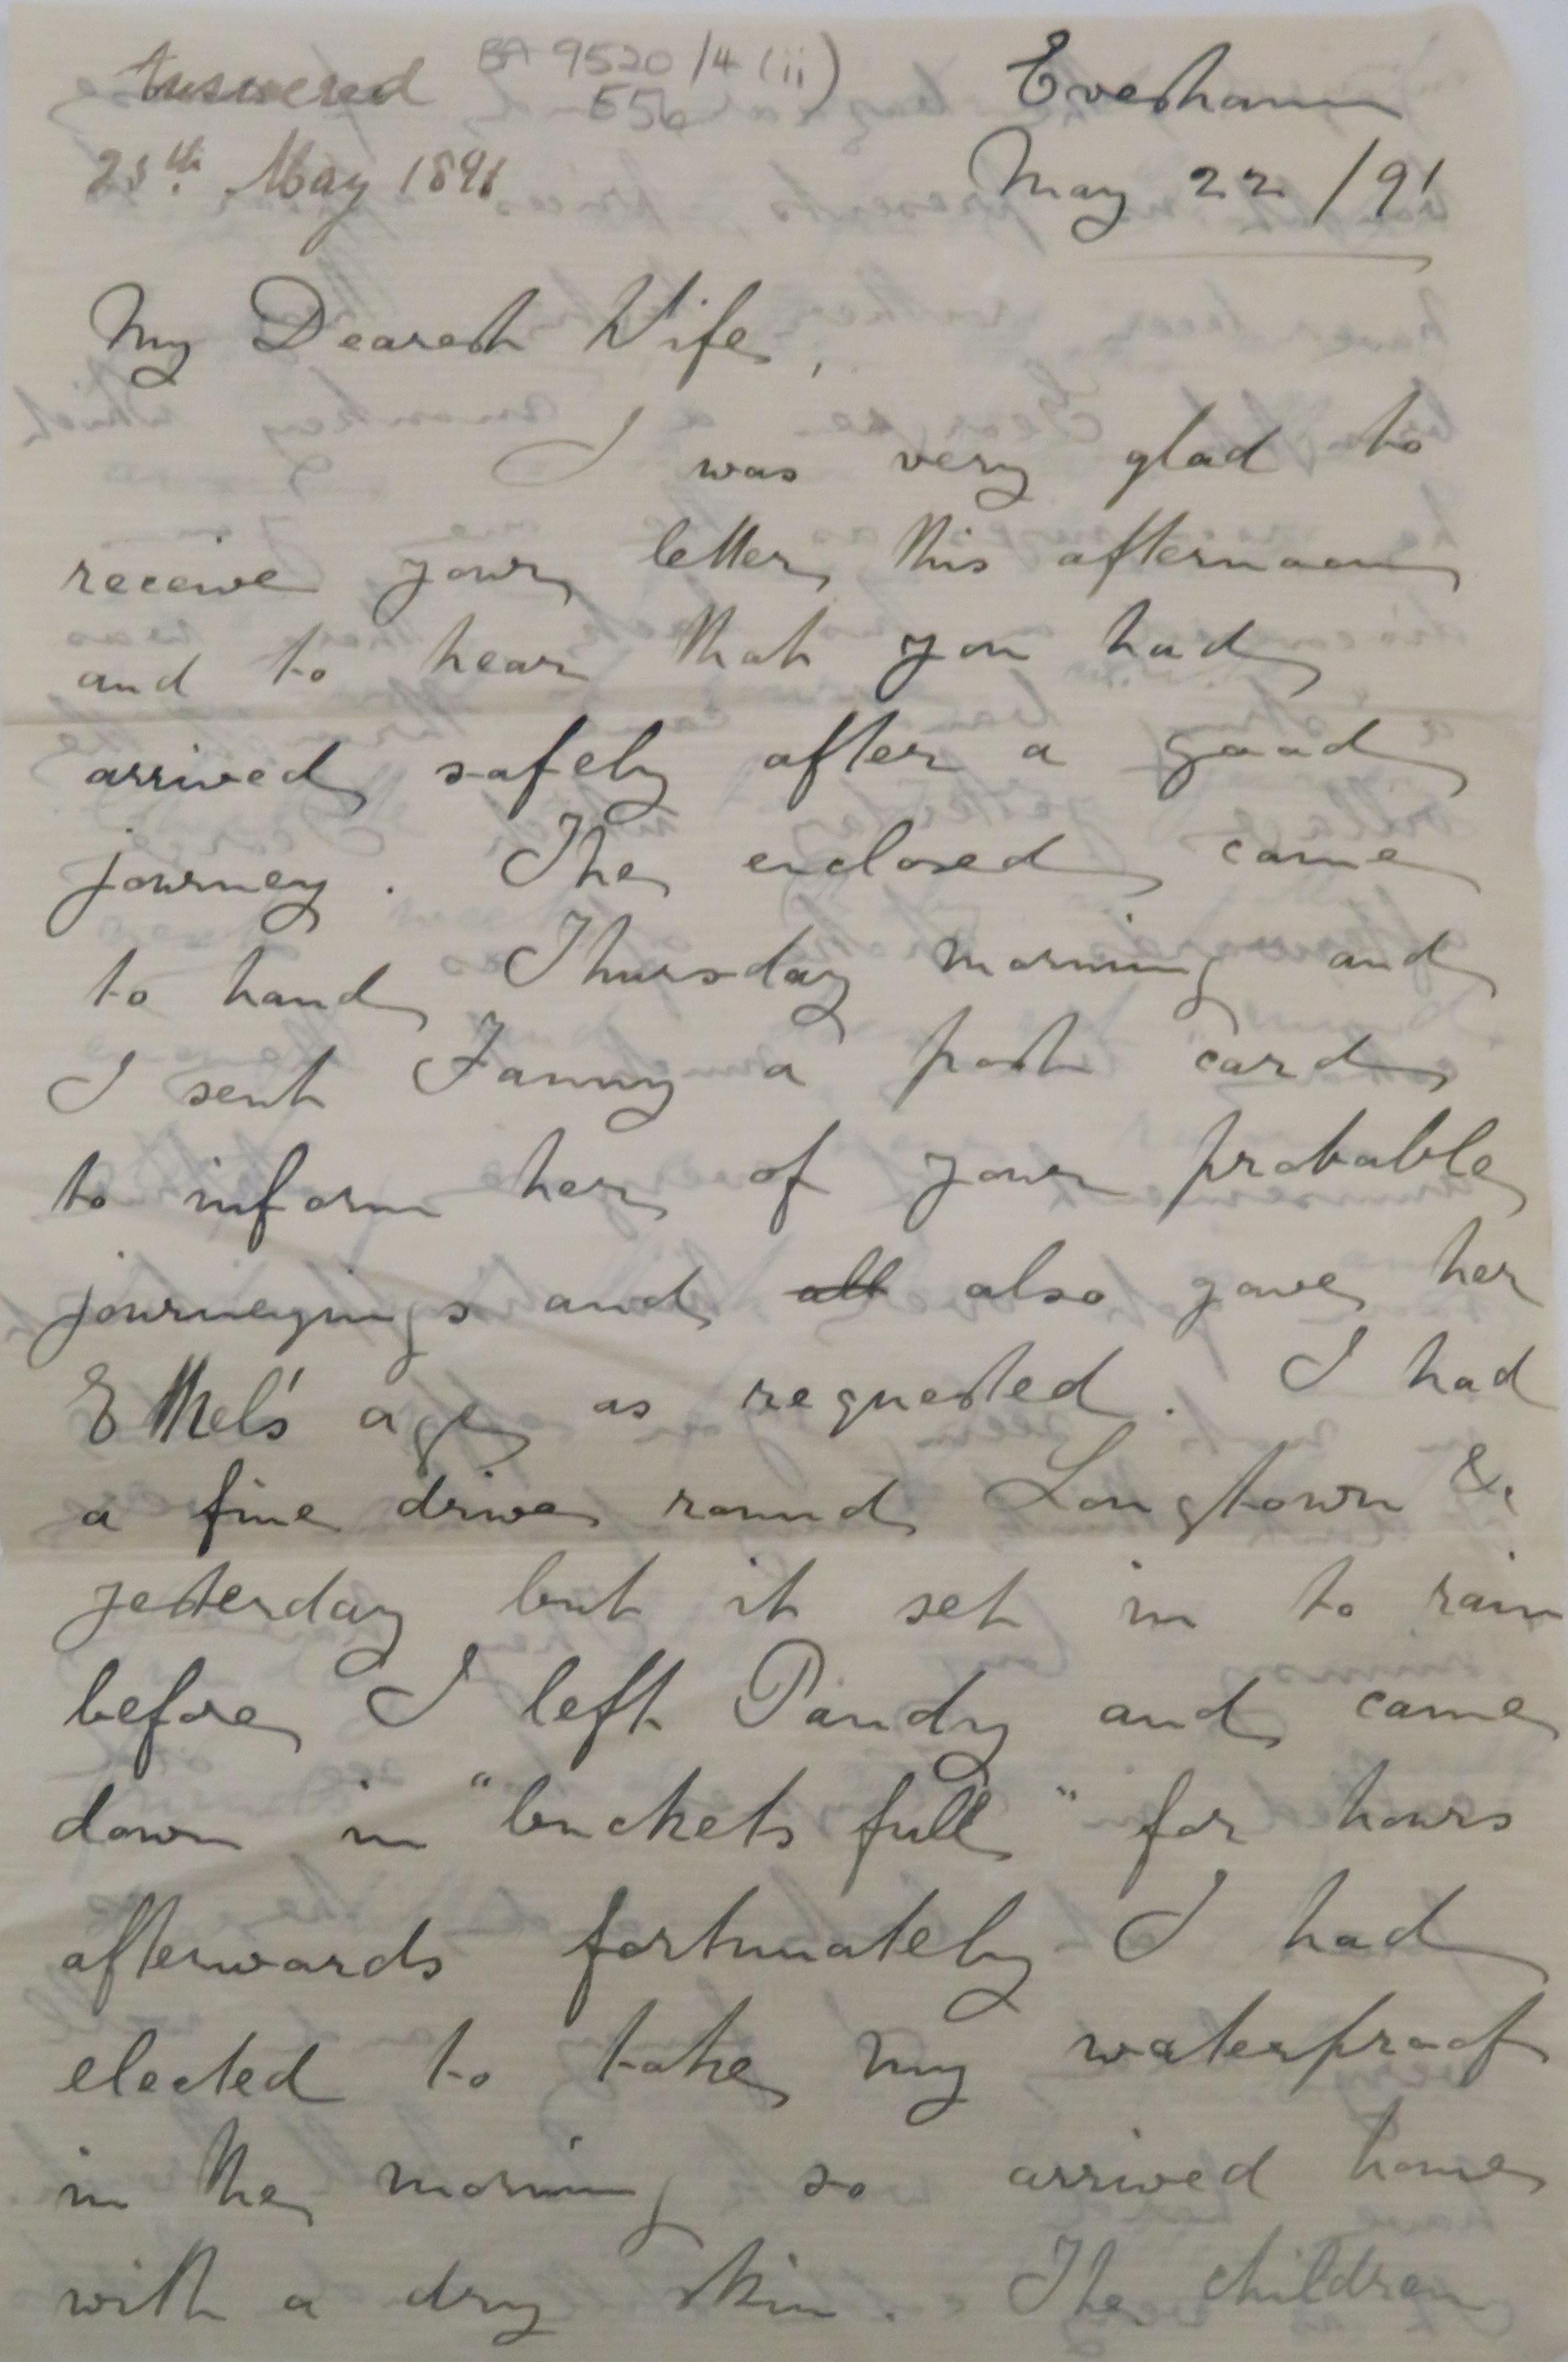 Answered BA 9520/4 (ii) Evesham
556
25th May 1891 May 22 /91
My Dearest Wife,
I was very glad to
receive your letter this afternoon
and to hear that you had
arrived safely after a good
journey. The enclosed came
to hand Thursday morning and
I sent Fanny a post card
to inform her of your probable
journeyings and all also gave her
Ethel's age as requested. I had
a fine drive round Longtown &c
yesterday but it set in to rain
before I left Pandy and came
down in "buckets full" for hours
afterwards fortunately I had
elected to take my waterproof
in the morning so arrived home
with a dry skin. The children